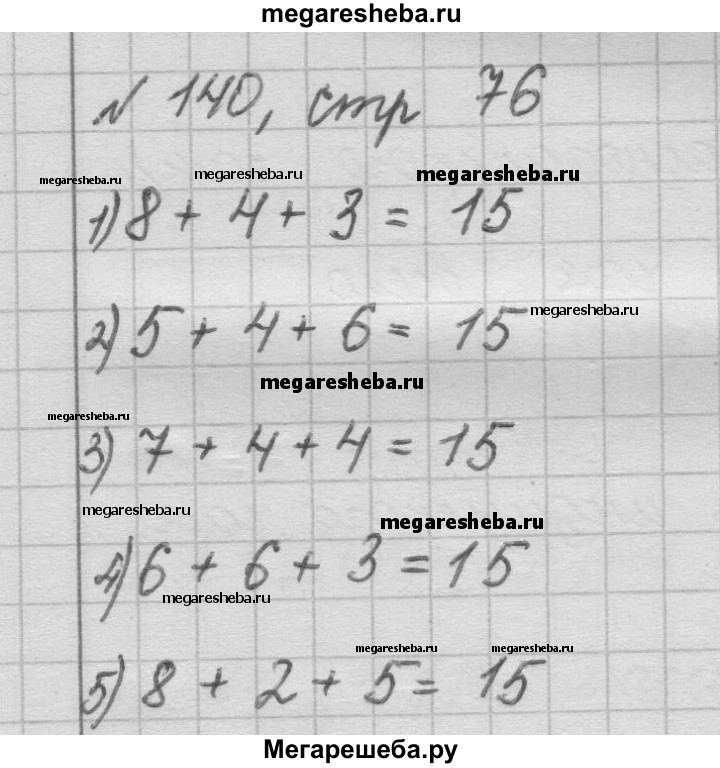 megaresheba.ru
№ 140, стр 76
megaresheba.ru megaresheba.ru megaresheba.ru
1) 8 + 4 + 3 = 15
2) 5 + 4 + 6 = 15 megaresheba.ru
megaresheba.ru
megaresheba.ru
3) 7 + 4 + 4 = 15
megaresheba.ru megaresheba.ru
4) 6 + 6 + 3 = 15
megaresheba.ru
megaresheba.ru megaresheba.ru
5) 8 + 2 + 5 = 15
Мегарешеба.ру